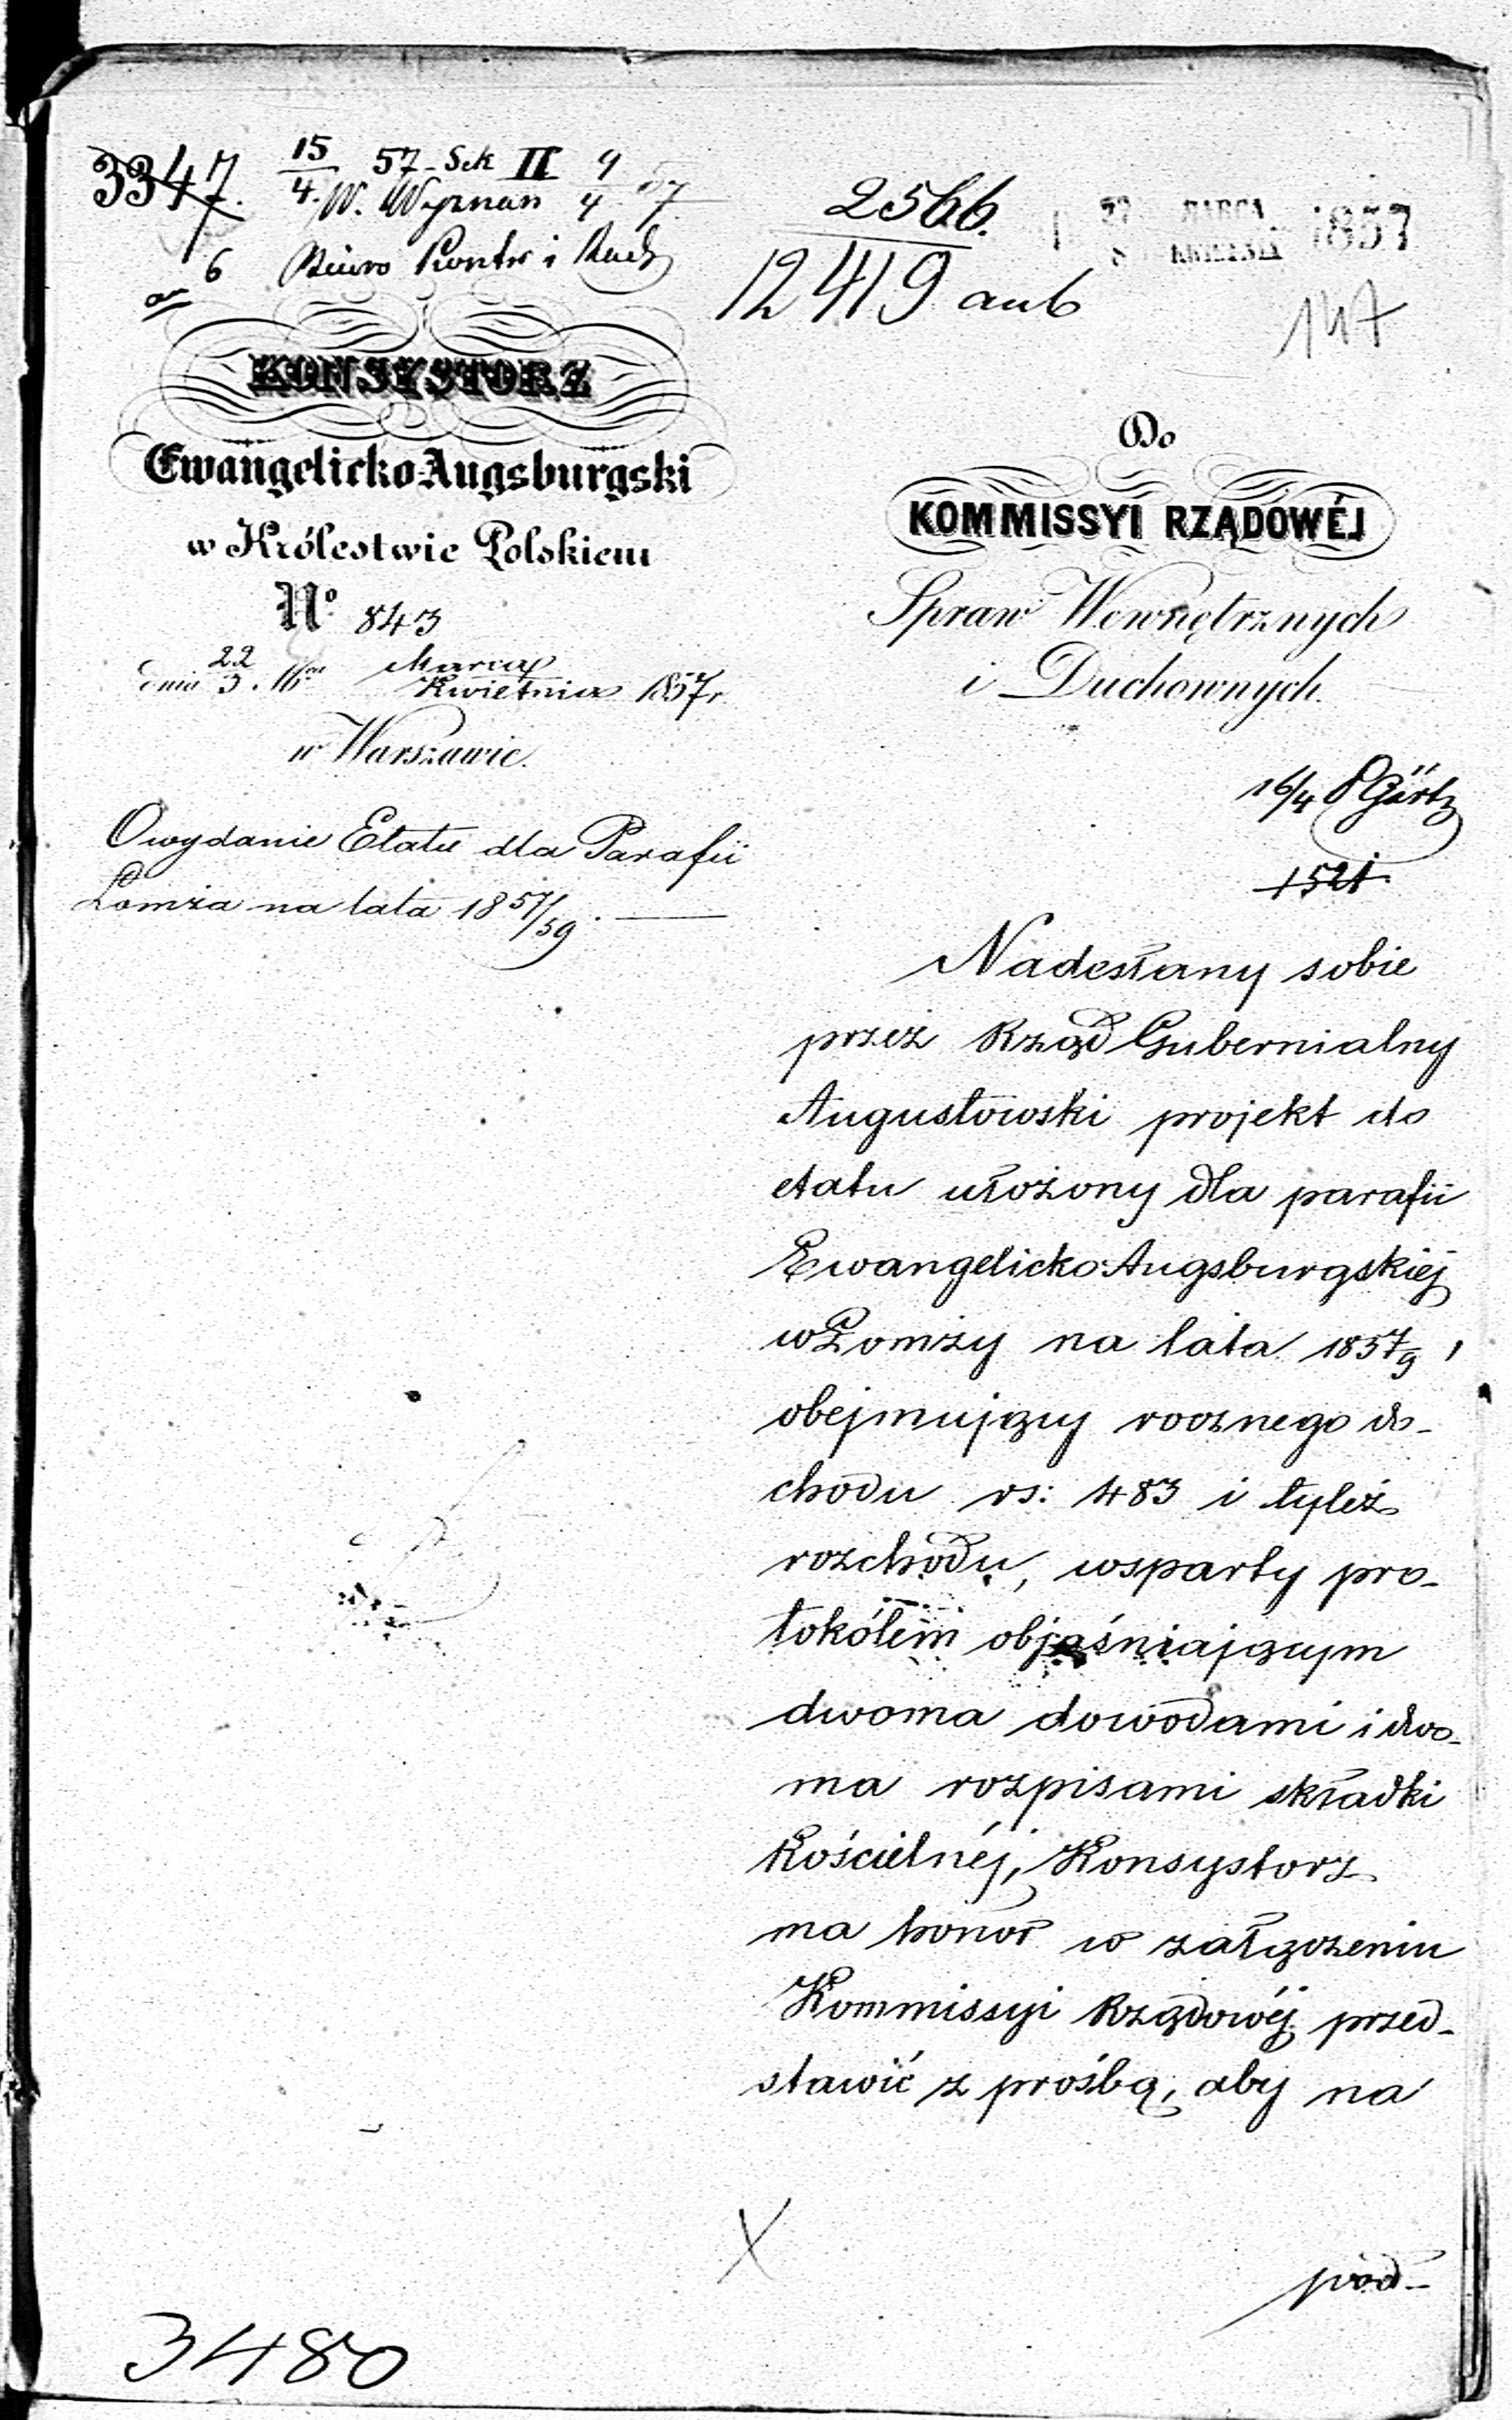 3347.
15/4 57 - Sek II 4/4 57
W. Wyznan
6 Biuro Kontr i Rach
2566.
12419 anb
27 MARCA
8 KWIETNIA 1857
147
KONSYSTORZ
Ewangelicko-Augsburgski
w Królestwie Polskiem
No 843
dnia 22/3 Marca/Kwietnia 1857 r.
w Warszawie.
O wydanie Etatu dla Parafii
Łomża na lata 1857/59.
Do
KOMMISSYI RZĄDOWÉJ
Spraw Wewnętrznych
i Duchownych.
16/4
1521.
Nadesłany sobie
przez Rząd Gubernialny
Augustowski projekt do
etatu ułożony dla parafii
Ewangelicko Augsburgskiéj
w Łomży na lata 1857/9,
obejmujący rocznego do-
chodu rs: 483 i tyleż
rozchodu, wsparty pro-
tokółem objaśniającym
dwoma dowodami i dwo-
ma rozpisami składki
Kościelnéj, Konsystorz
ma honor w załączeniu
Kommissyi Rządowéj przed-
stawić z prośbą, aby na
pod-
3480